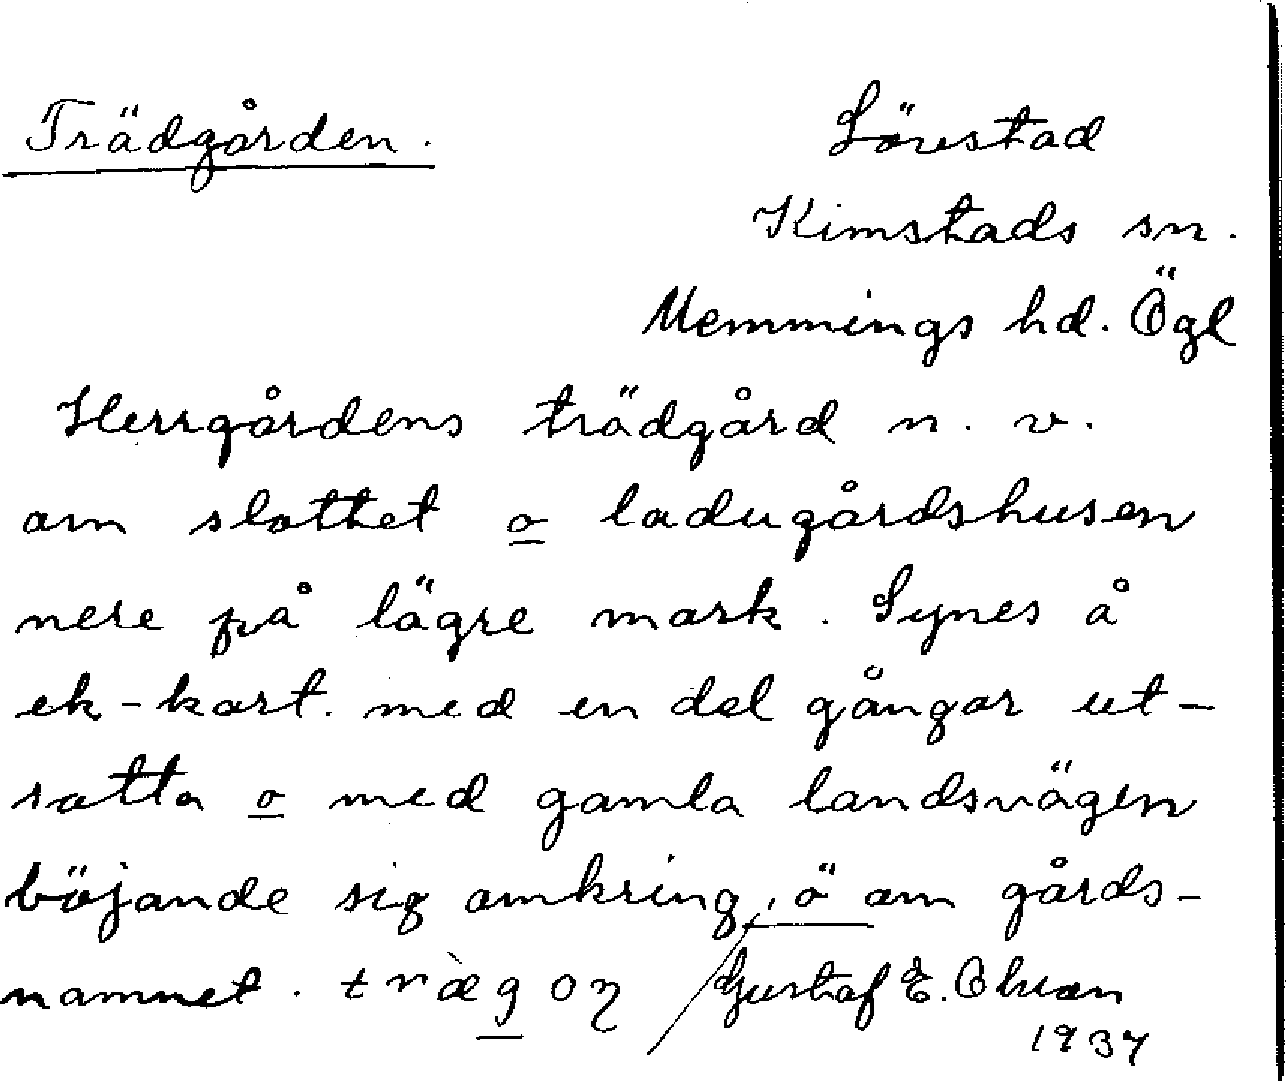 Trädgården.
Lörestad
Kimstads sn.
Memmings hd. Ögl
Herrgårdens trädgård n. v.
om slottet o ladugårdshusen
nere på lägre mark. Synes å
ek-kart. med en del gångar ut-
satta o med gamla landsvägen
böjande sig omkring, ö om gårds-
namnet. Gustaf E.
1937